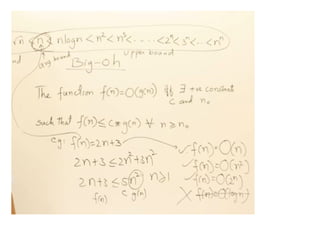 √n < n/2 < nlogn < n² < n³ < ..... < 2ⁿ < 3ⁿ < ... < nⁿ
avg bound
upper bound
Big-Oh
The function f(n)=O(g(n)) iff ∃ +ve constant
c and n₀
such that f(n) ≤ c*g(n) ∀ n ≥ n₀
eg: f(n)=2n+3
2n+3 ≤ 2n²+3n²
2n+3 ≤ 5n² n≥1
f(n) c g(n)
✓ f(n)=O(n)
✓ f(n)=O(n²)
✓ f(n)=O(2ⁿ)
X f(n)=O(logn)